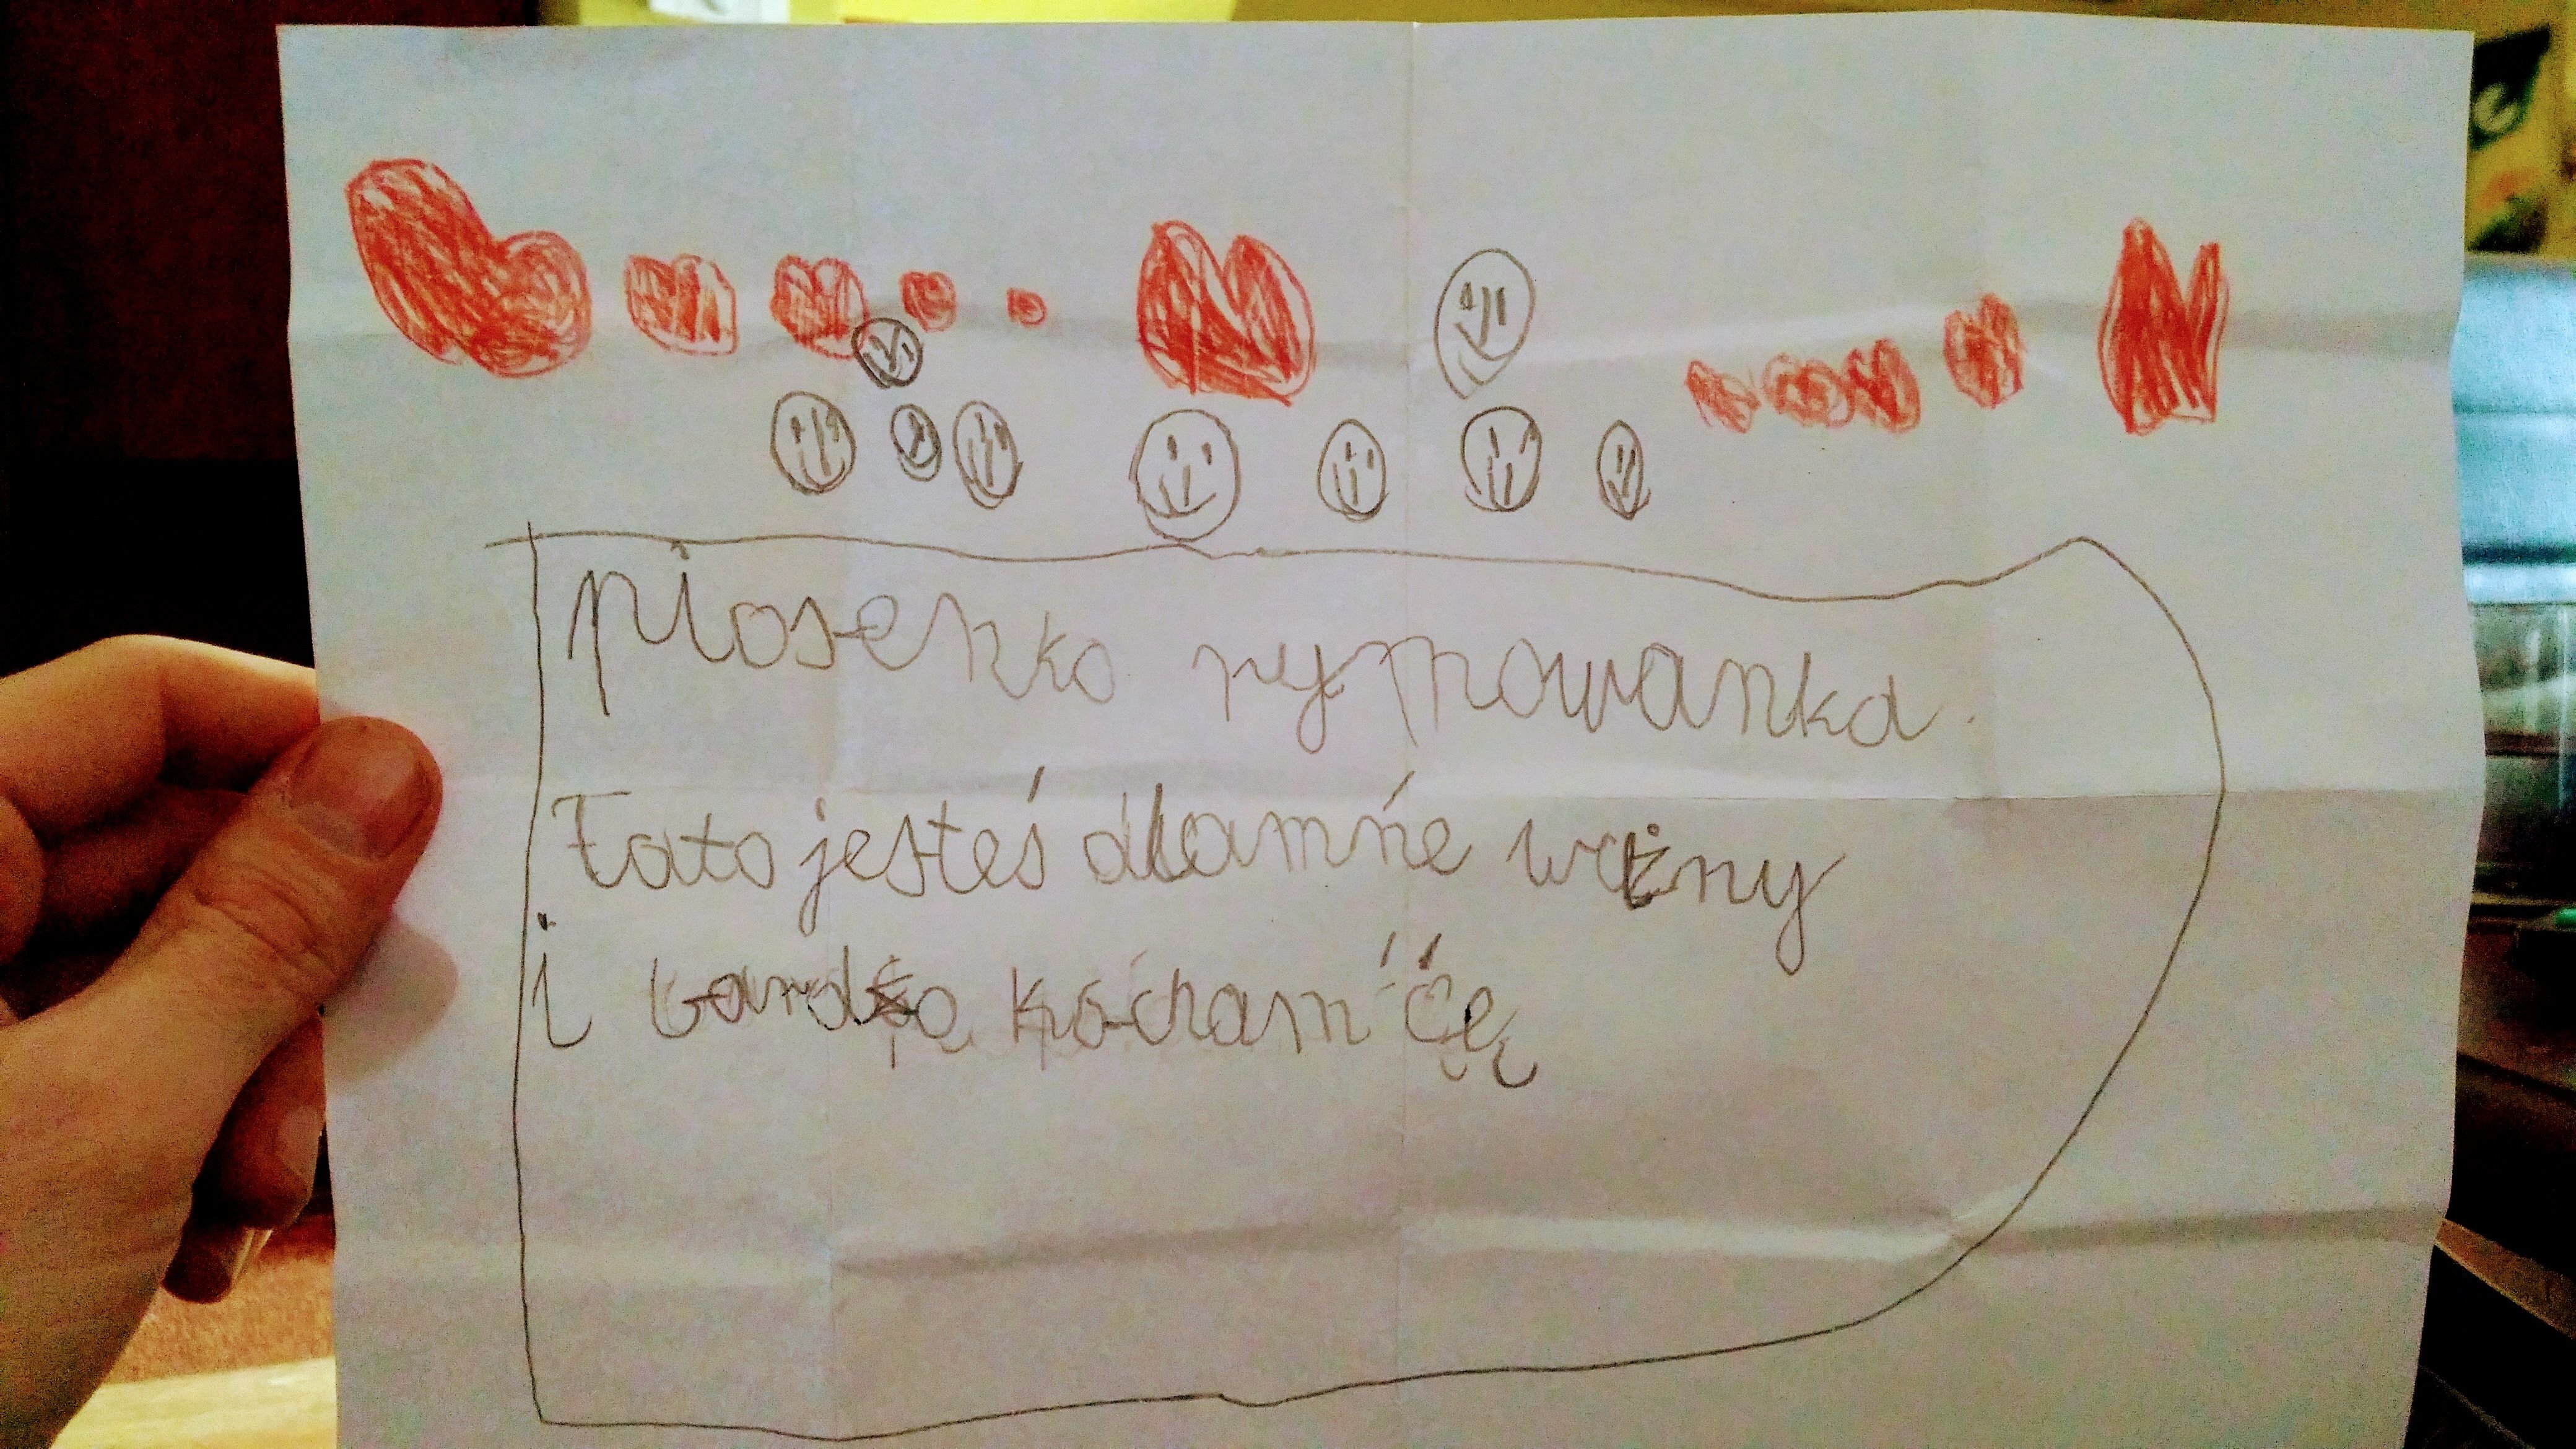 piosenka rymowanka.
Tato jesteś dlamńe ważny
i bardzo kocham ćę